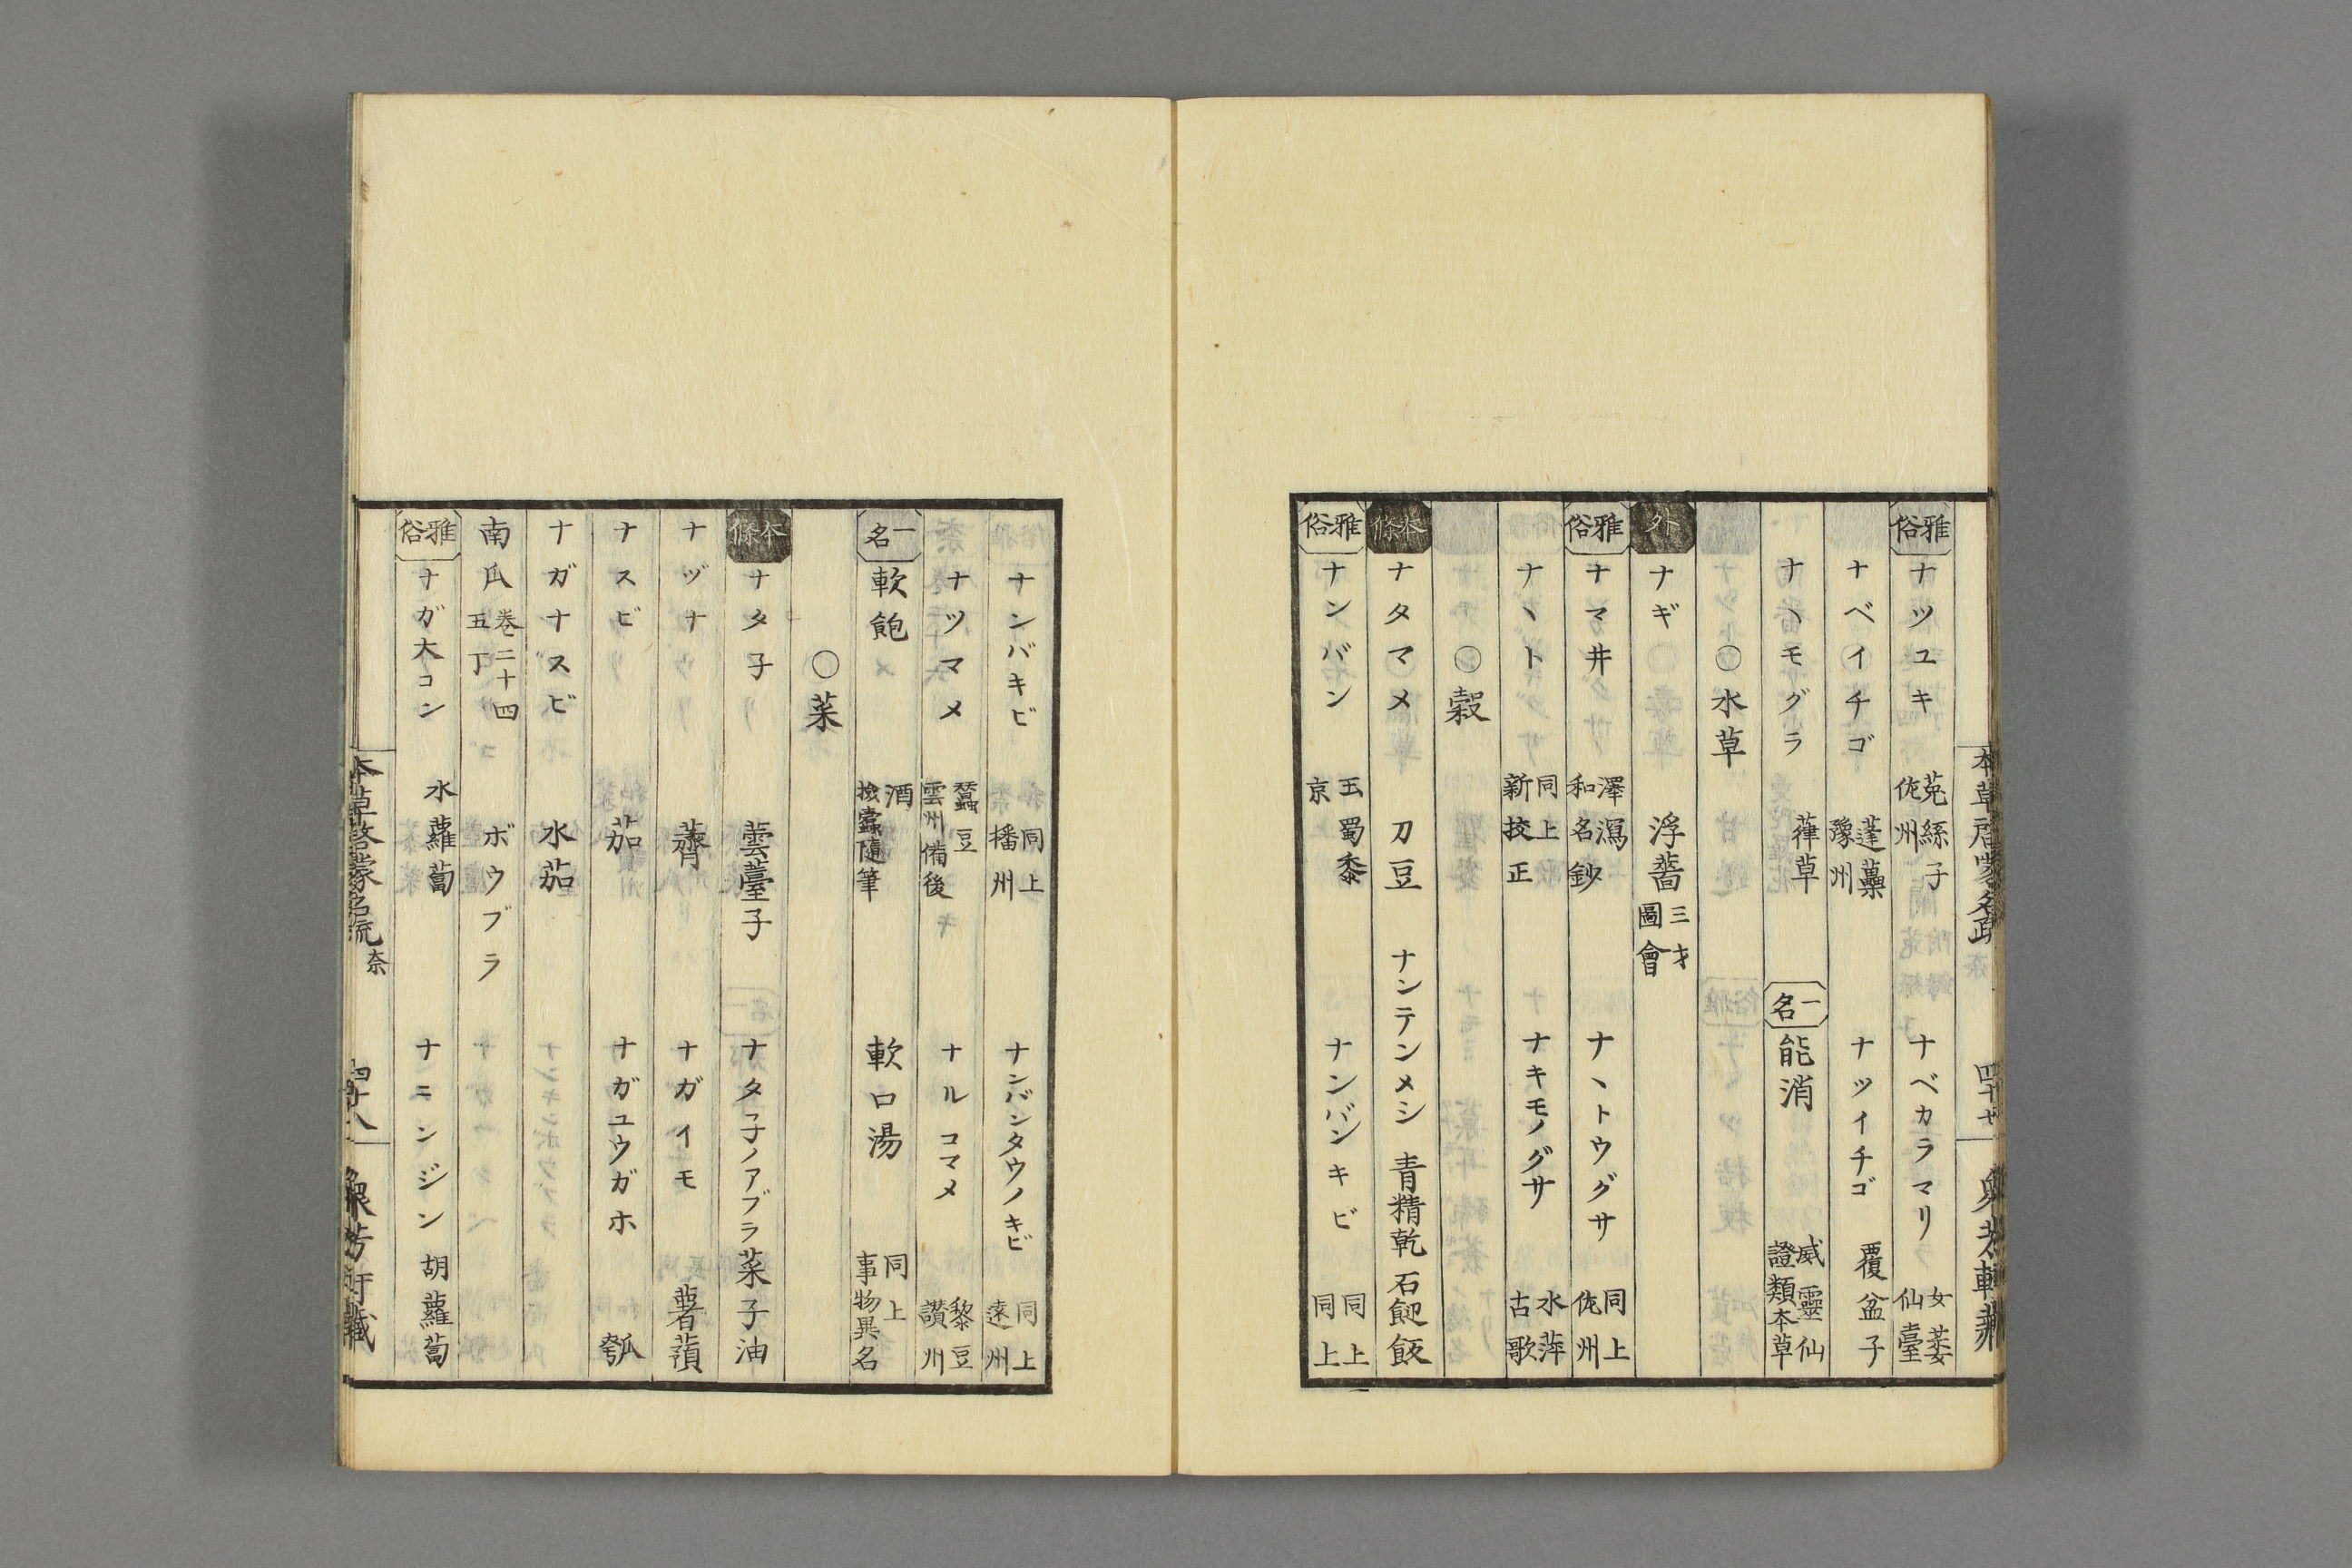 雅俗 ナツユキ 菟絲子 佐州 ナベカラマリ 女萎 仙臺
ナベイチゴ 蓬虆 豫州 ナツイチゴ 覆盆子
ナヽモグラ 葎草 一名 能消 威靈仙 證類本草
○水草
外 ナギ 浮薔 三才圖會
雅俗 ナマ井 澤瀉 和名鈔 ナヽトウグサ 同上 佐州
ナヽト 同上 新挍正 ナキモノグサ 水萍 古歌
○穀
本條 ナタマメ 刀豆 ナンテンメシ 青精乾石䭀飯
雅俗 ナンバン 玉蜀黍 京 ナンバンキビ 同上 同上
ナンバキビ 同上 播州 ナンバンタウノキビ 同上 遠州
ナツマメ 蠶豆 雲州 備後 ナルコマメ 黎豆 讃州
一名 軟飽 酒 撿蠧隨筆 軟口湯 同上 事物異名
○菜
本條 ナタ子 蕓薹子 ナタ子ノアブラ 菜子油
ナヅナ 薺 ナガイモ 薯蕷
ナスビ 茄 ナガユウガホ 瓠
ナガナスビ 水茄
南瓜 卷二十四 五丁 ボウブラ
雅俗 ナガ大コン 水蘿蔔 ナニンジン 胡蘿蔔
本草啓蒙名疏 奈 四十八